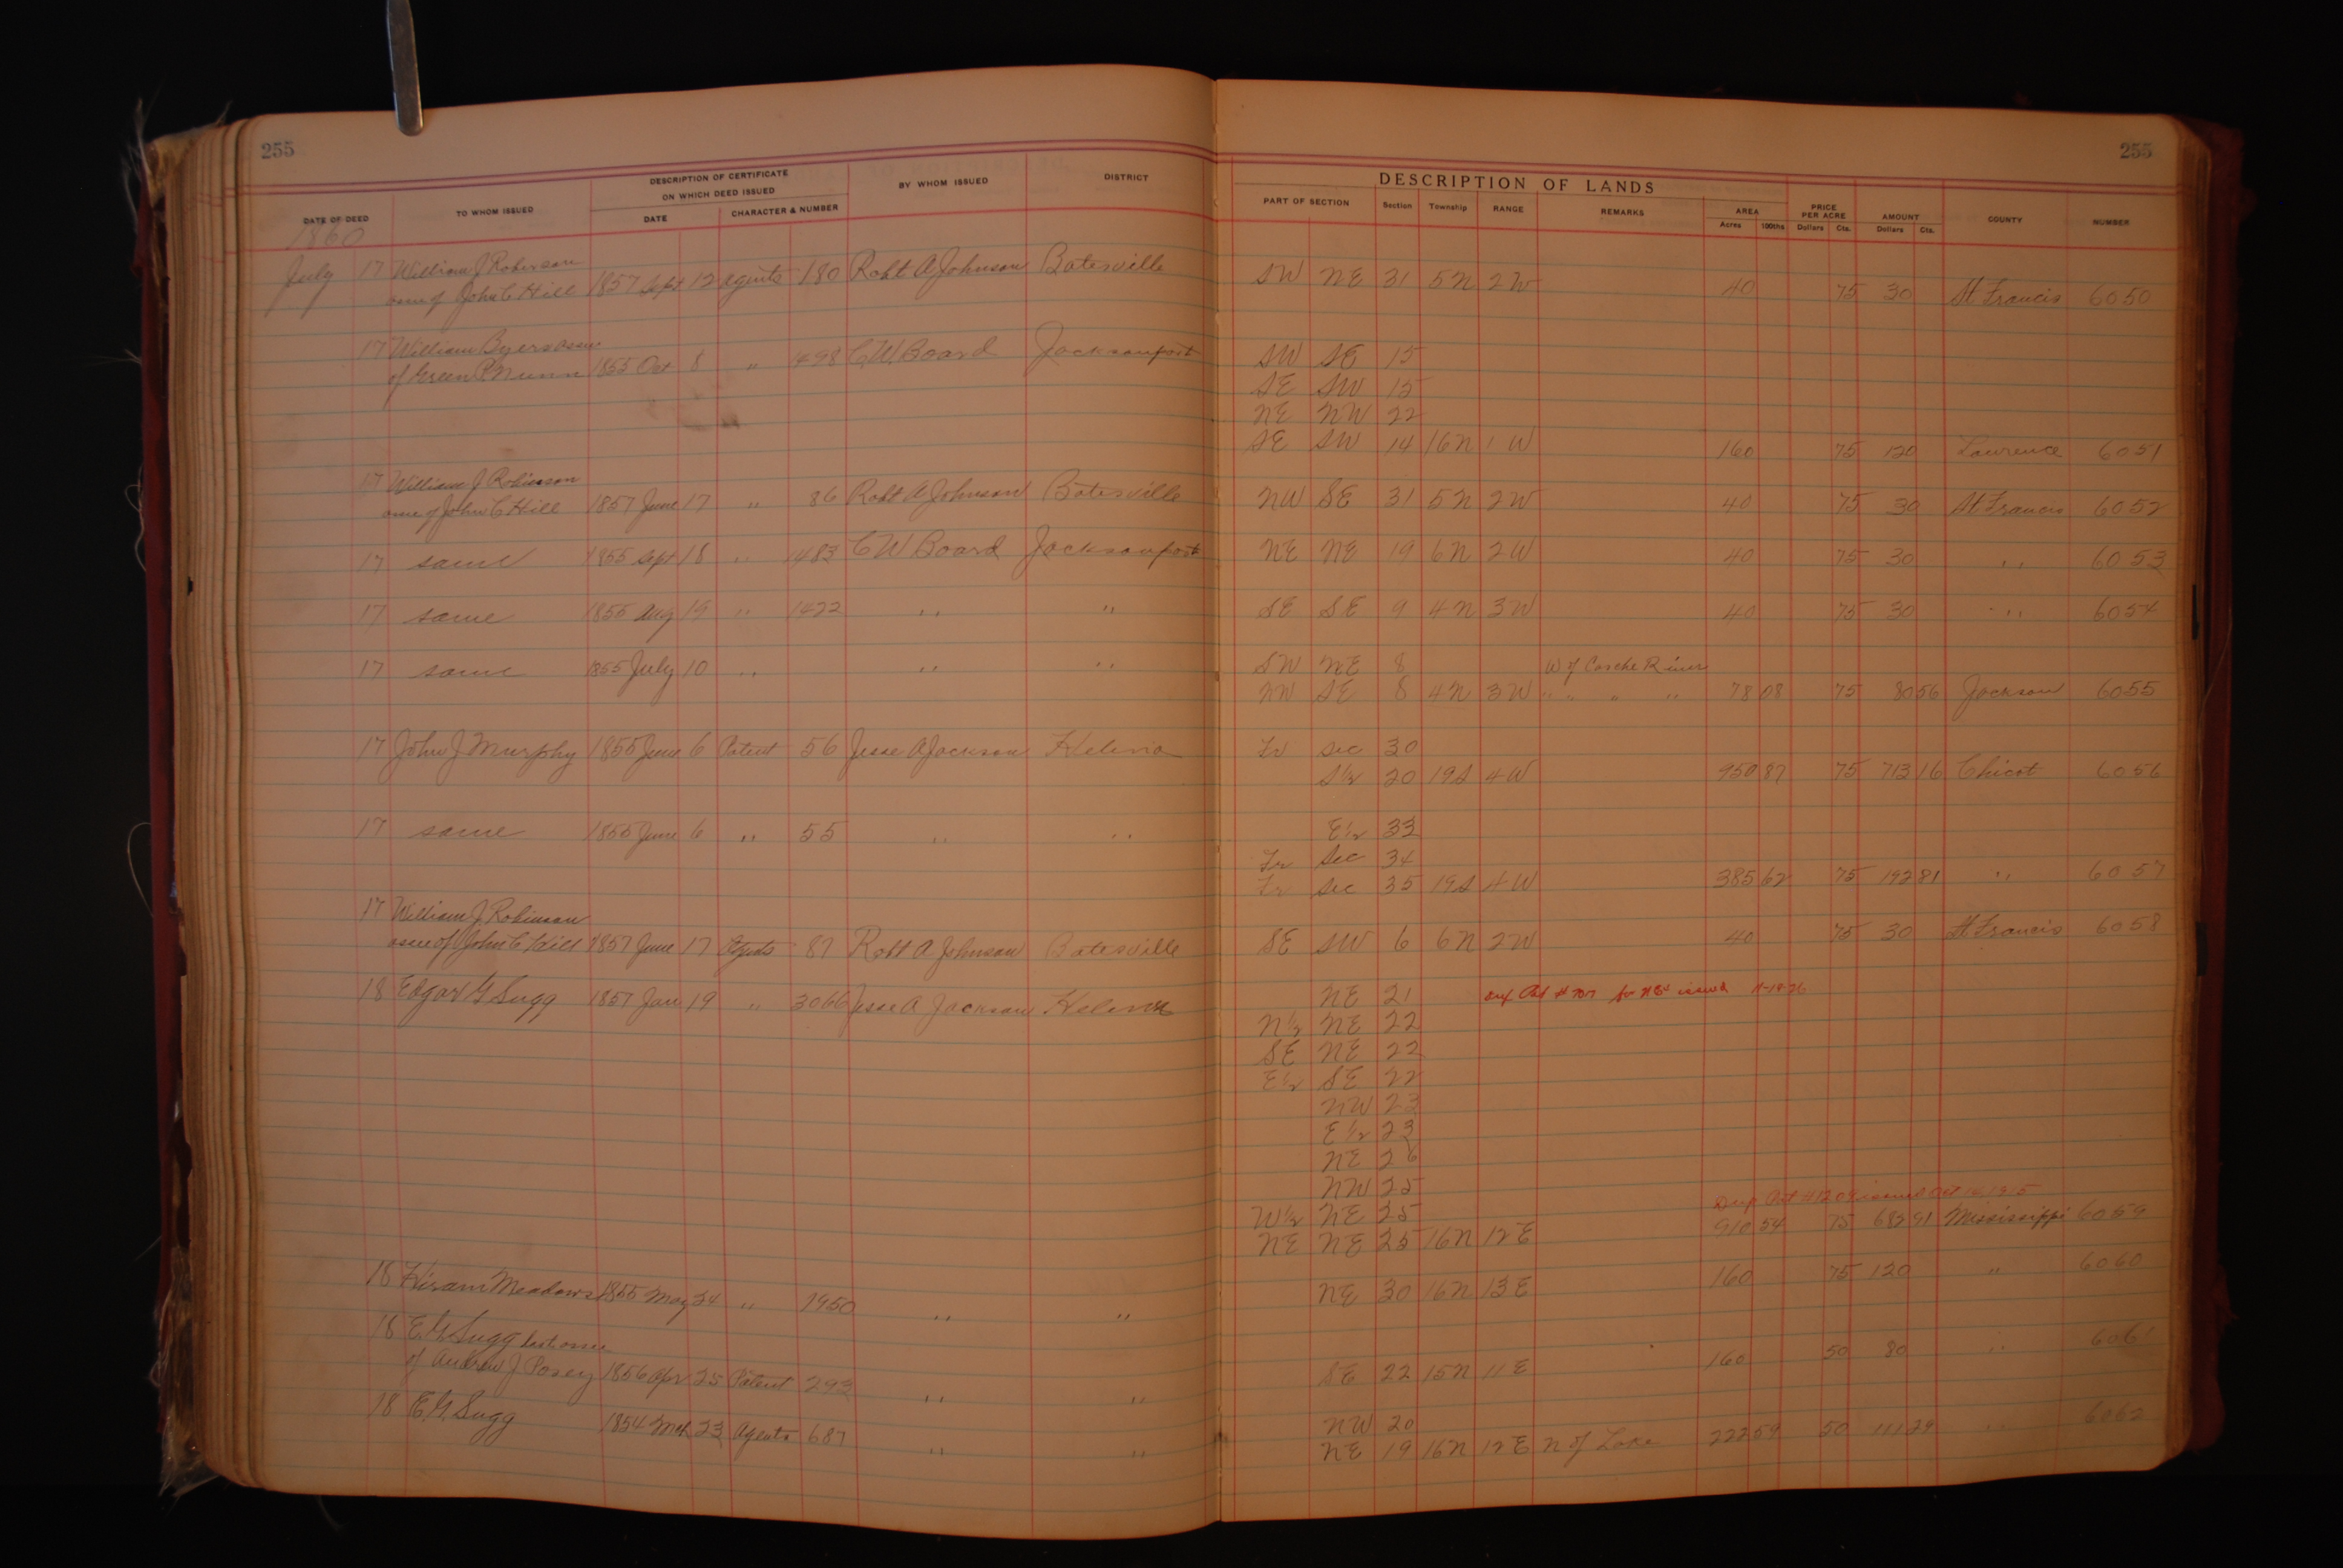 255
255
DESCRIPTION OF CERTIFICATE
ON WHICH DEED ISSUED
BY WHOM ISSUED DISTRICT
DESCRIPTION OF LANDS
DATE OF DEED TO WHOM ISSUED DATE CHARACTER & NUMBER
PART OF SECTION Section Township RANGE REMARKS AREA PRICE PER ACRE AMOUNT COUNTY NUMBER
Acres 100ths Dollars Cts. Dollars Cts.
1860
July 17 William J Roberson
asne of John C Hill 1857 Sept 12 Agents 180 Robt A Johnson Batesville SW NE 31 5N 2W 40 75 30 St Francis 6050
17 William Byers asne
of Green P. Nunn 1855 Oct 8 " 1498 C W Board Jacksonport SW SE 15
SE SW 15
NE NW 22
SE SW 14 16N 1W 160 75 120 Lawrence 6051
17 William J Robinson
asne of John C Hill 1857 June 17 " 86 Robt A Johnson Batesville NW SE 31 5N 2W 40 75 30 St Francis 6052
17 same 1855 Sept 18 " 1483 C W Board Jacksonport NE NE 19 6N 2W 40 75 30 " 6053
17 same 1855 Aug 15 " 1422 " " SE SE 9 4N 3W 40 75 30 " 6054
17 same 1855 July 10 " " " SW NE 8 W of Cache River
NW SE 8 4N 3W " " " " 78 08 75 80 56 Jackson 6055
17 John J Murphy 1855 June 6 Patent 56 Jesse A Jackson Helena Fr Sec 30
S½ 20 19S 4W 950 87 75 713 16 Chicot 6056
17 same 1855 June 6 " 55 " " E½ 33
Fr Sec 34
Fr Sec 35 19S 4W 385 62 75 192 81 " 6057
17 William J Robinson
asne of John C Hill 1857 June 17 Agents 87 Robt A Johnson Batesville SE SW 6 6N 2W 40 75 30 St Francis 6058
18 Edgar G Sugg 1857 Jan 19 " 3066 Jesse A Jackson Helena NE 21 Dup Pat # issued
N½ NE 22
SE NE 22
E½ SE 22
NW 23
E½ 23
NE 26
NW 25
W½ NE 25 Dup Pat #1204 issued Oct 1915
NE NE 25 16N 12E 910 54 75 682 91 Mississippi 6059
18 Hiram Meadows 1855 May 24 " 1950 " " NE 30 16N 13E 160 75 120 " 6060
18 E. G. Sugg last asne
of Andrew J Posey 1856 Apr 25 Patent 293 " " SE 22 15N 11E 160 50 80 " 6061
18 E. G. Sugg 1854 Mch 23 Agents 687 " " NW 20
NE 19 16N 12E N of Lake 222 59 50 111 29 " 6062